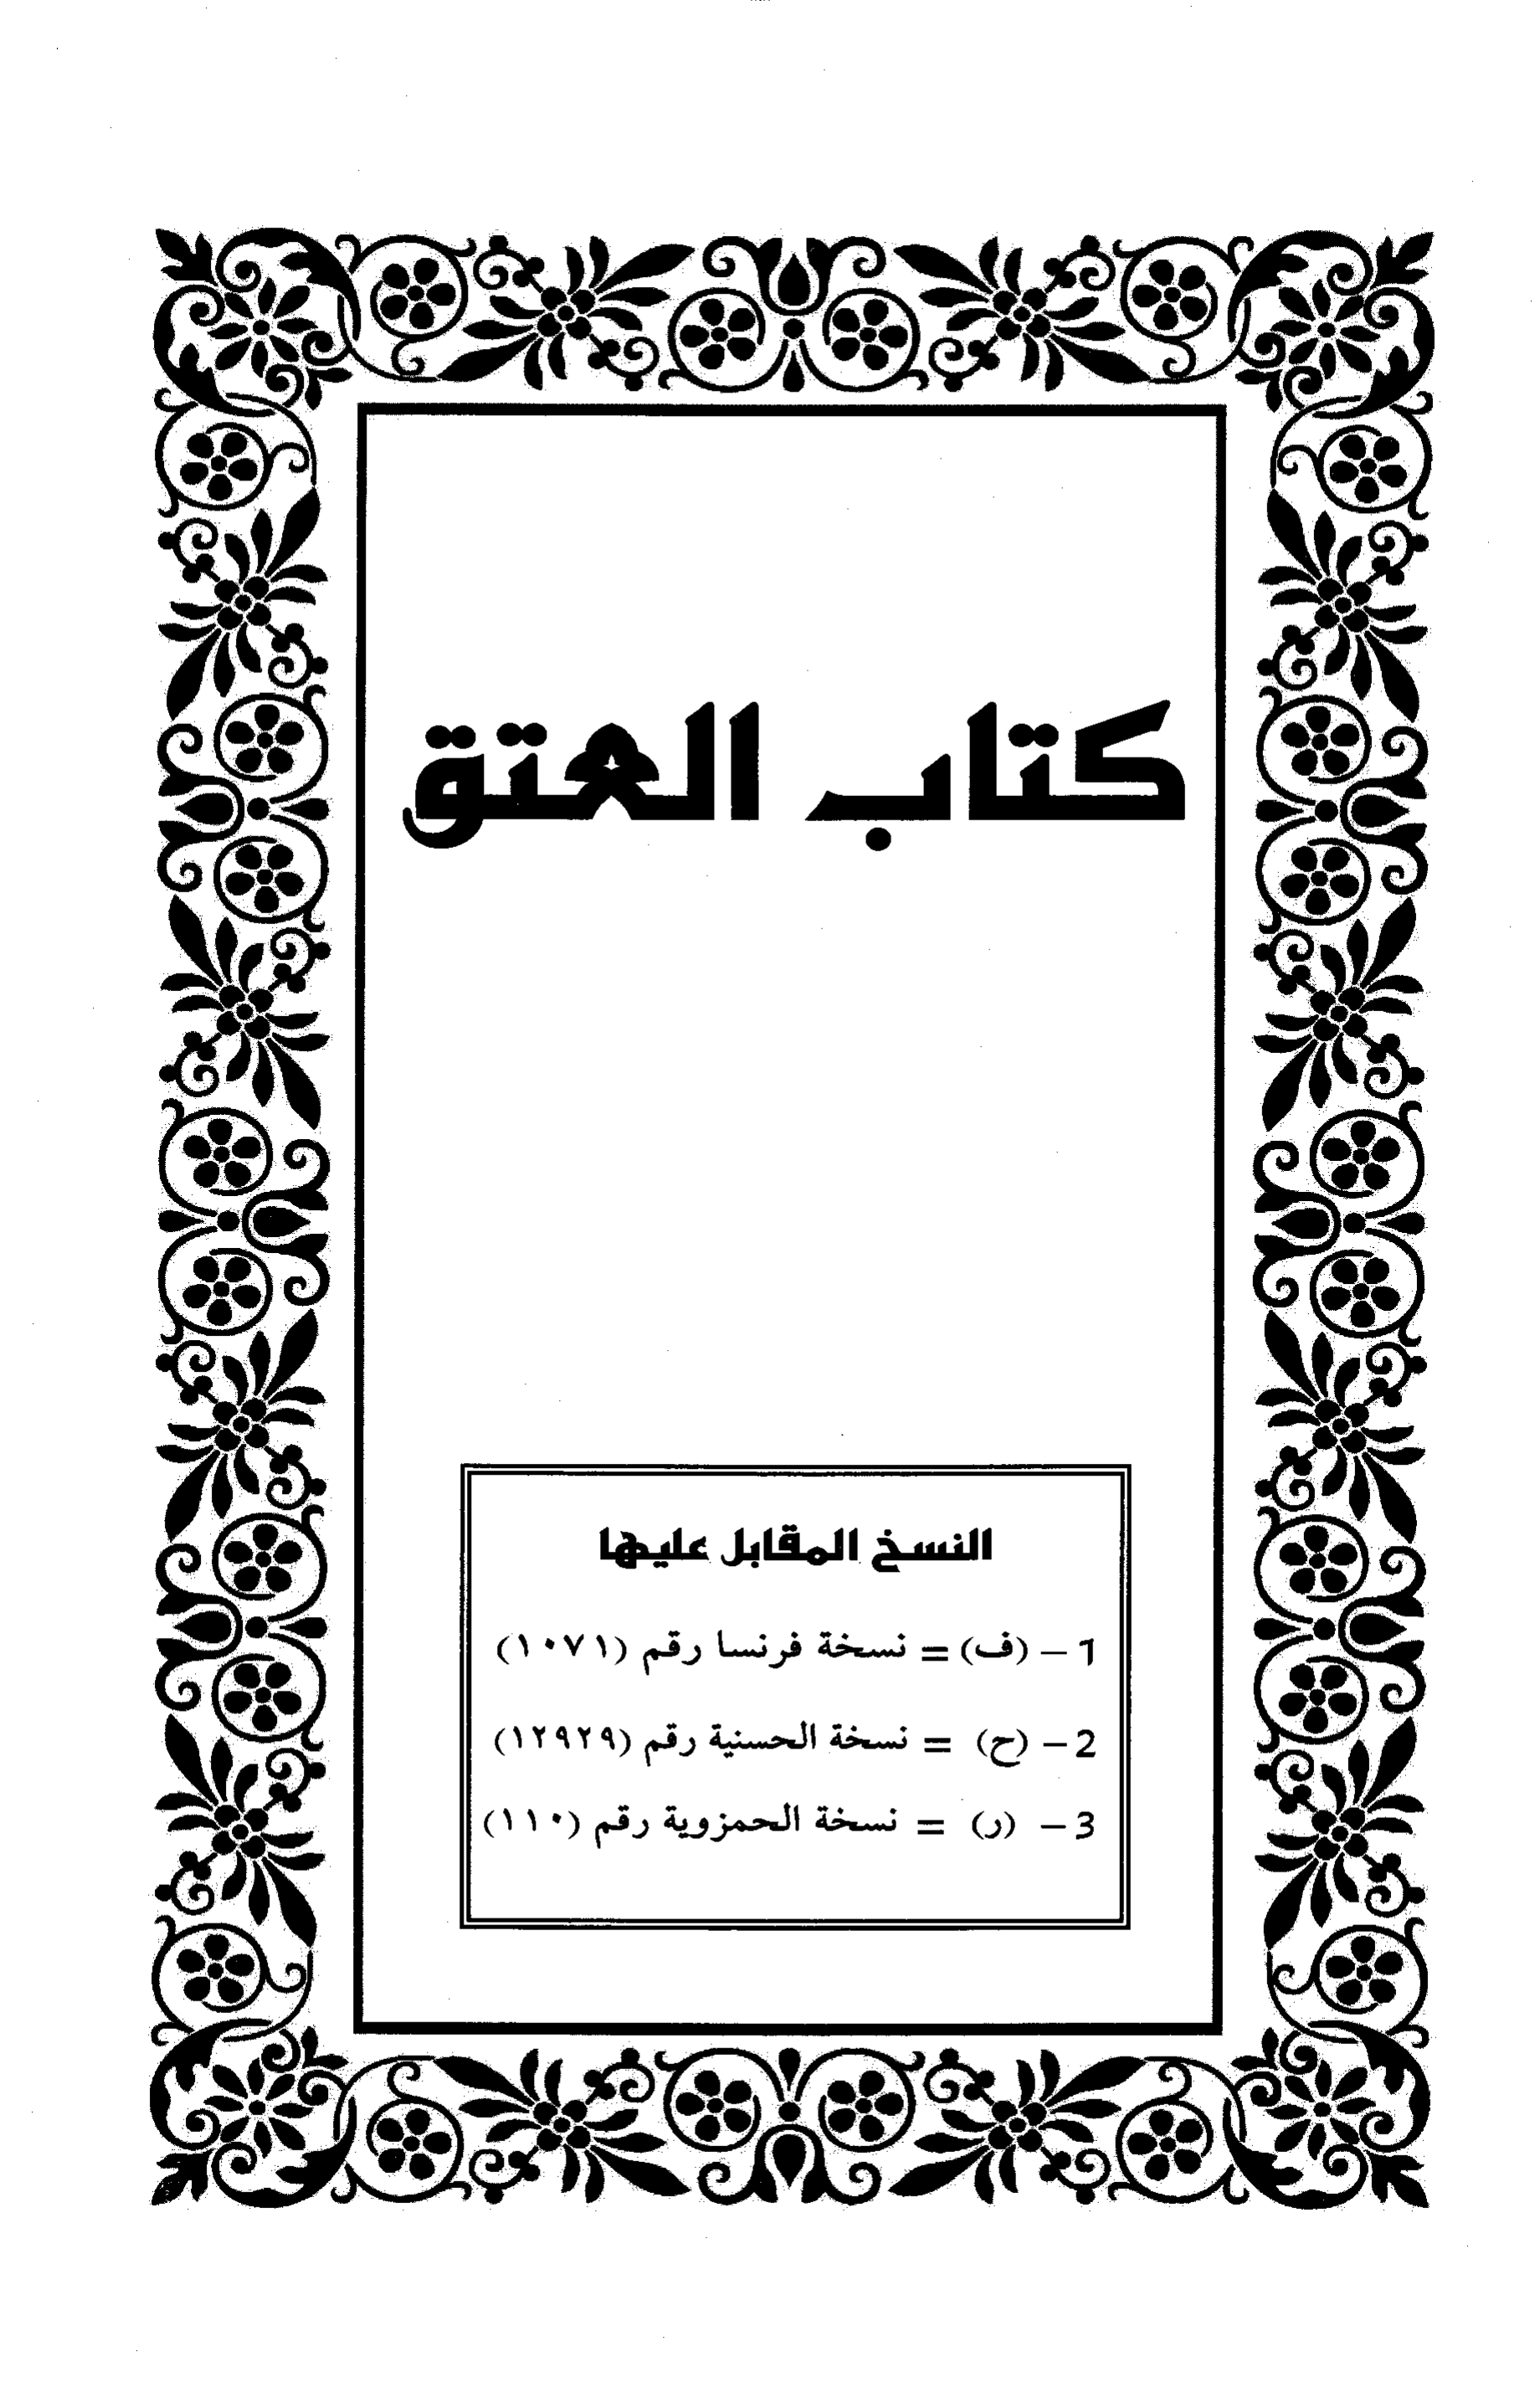 كتاب العتق
النسخ المقابل عليها
1 - (ف) = نسخة فرنسا رقم (١٠٧١)
2 - (ح) = نسخة الحسنية رقم (١٢٩٢٩)
3 - (ر) = نسخة الحمزوية رقم (١١٠)